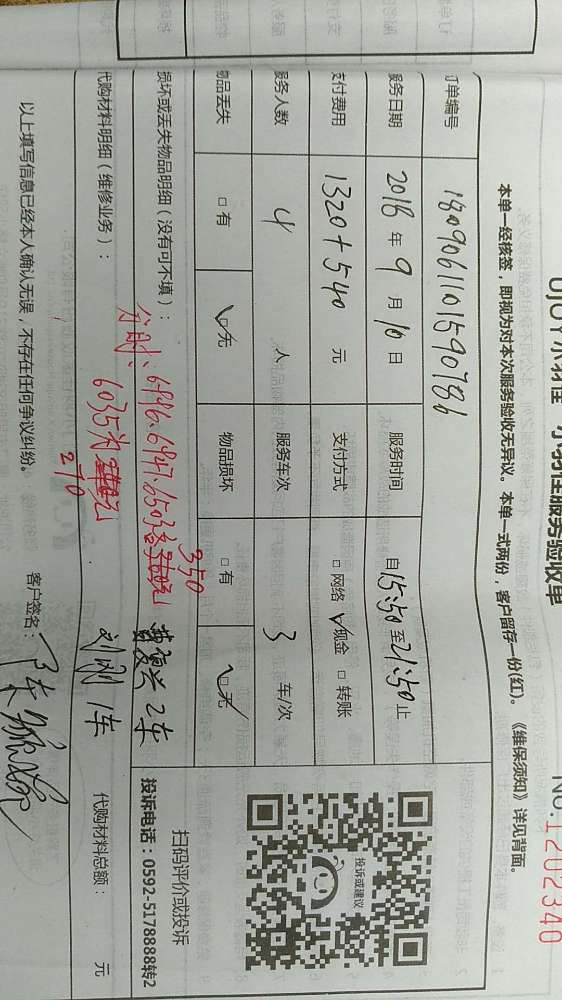 UJOY小羽佳 小羽佳服务验收单
NO.1202340
本单一经核签，即视为对本次服务验收无异议。本单一式两份，客户留存一份(红)。《维保须知》详见背面。
订单编号 1809061101590786
服务日期 2018年9月10日 服务时间 自15:50至21:50止
支付费用 1320+540元 支付方式 □网络 ✓现金 □转账
服务人数 4人 服务车次 3车/次
物品丢失 □有 ✓□无 物品损坏 □有 ✓□无
损坏或丢失物品明细（没有可不填）：
分时：6946.6947.6503各 350
2车
代购材料明细（维修业务）：
6035为 270
刘刚1车
代购材料总额： 元
以上填写信息已经本人确认无误，不存在任何争议纠纷。
客户签名：
投诉或建议
扫码评价或投诉
投诉电话：0592-5178888转2